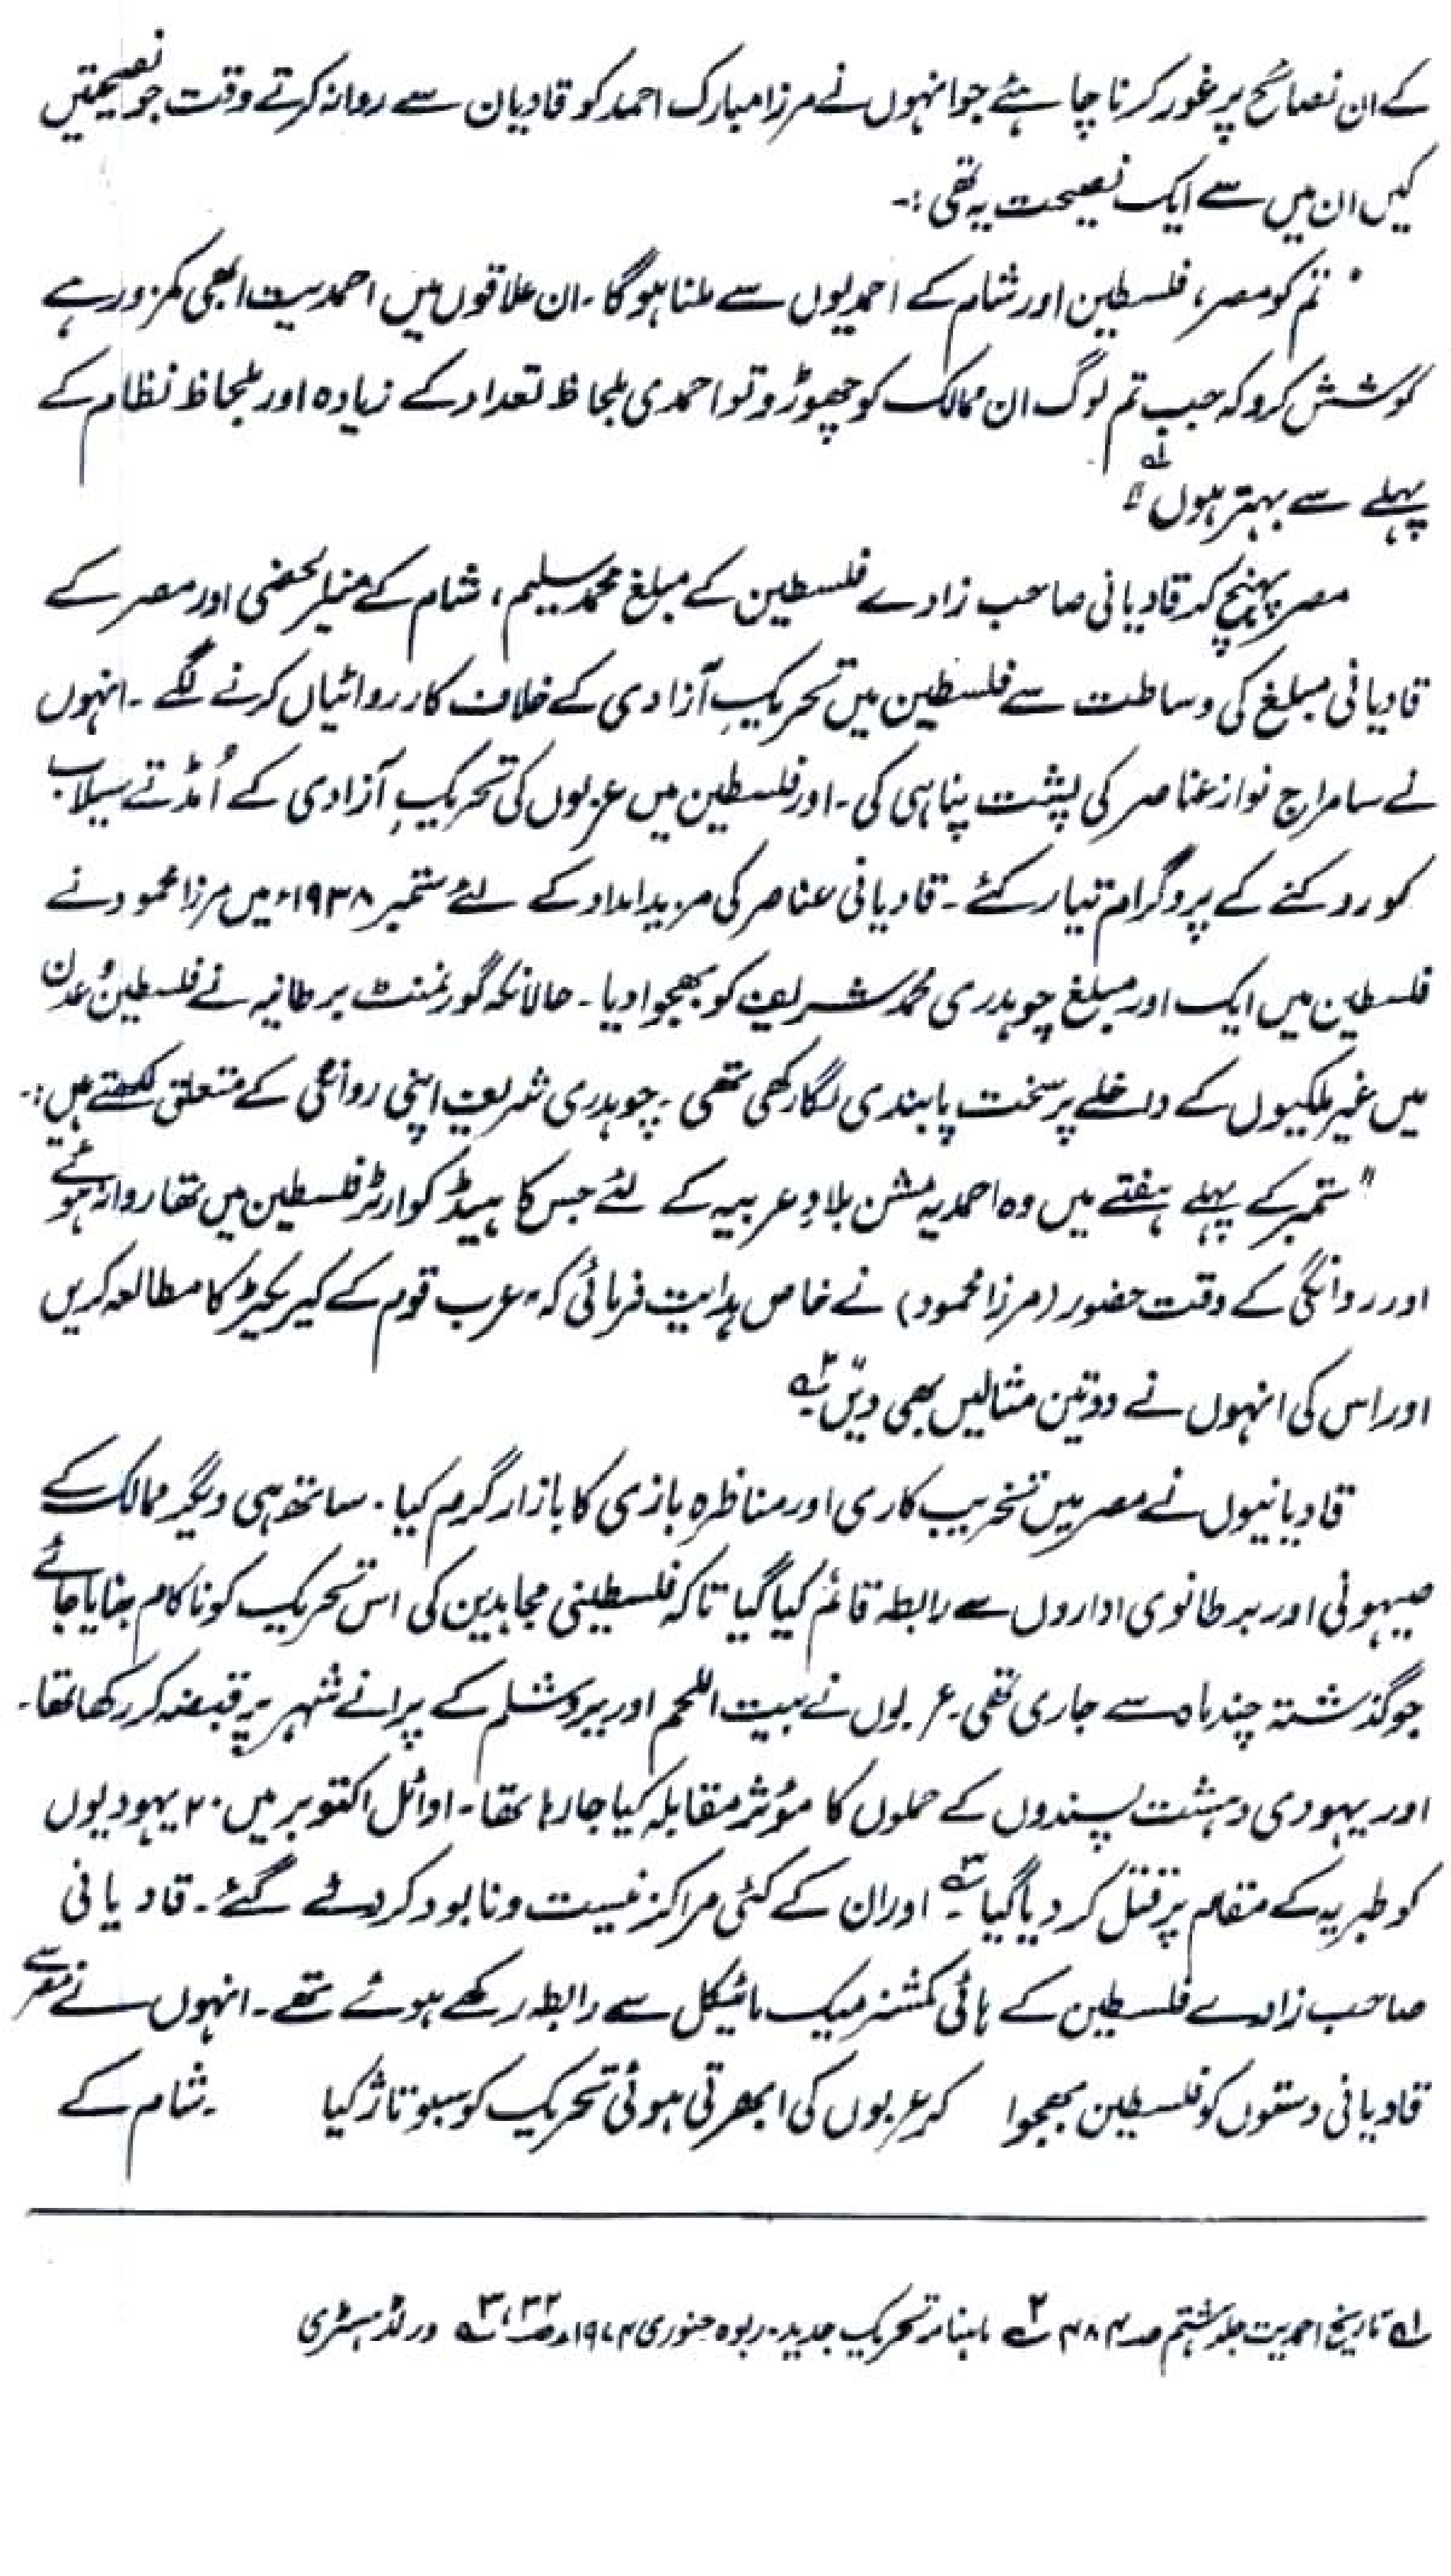 کے ان نصائح پر غور کرنا چاہئے جو انہوں نے مرزا مبارک احمد کو قادیان سے روانہ کرتے وقت جو نصیحتیں
کیں ان میں سے ایک نصیحت یہ تھی :۔
" تم کو مصر، فلسطین اور شام کے احمدیوں سے ملنا ہو گا ۔ ان علاقوں میں احمدیت ابھی کمزور ہے
کوشش کرو کہ جب تم لوگ ان ممالک کو چھوڑو تو احمدی بلحاظ تعداد کے زیادہ اور بلحاظ نظام کے
پہلے سے بہتر ہوں " ۱؎
مصر پہنچ کر قادیانی صاحب زادے فلسطین کے مبلغ محمد سلیم ، شام کے منیر الحضی اور مصر کے
قادیانی مبلغ کی وساطت سے فلسطین میں تحریکِ آزادی کے خلاف کارروائیاں کرنے لگے ۔ انہوں
نے سامراج نواز عناصر کی پشت پناہی کی ۔ اور فلسطین میں عربوں کی تحریکِ آزادی کے اُمڈتے سیلاب
کو روکنے کے پروگرام تیار کئے ۔ قادیانی عناصر کی مزید امداد کے لئے ستمبر ۱۹۳۸ء میں مرزا محمود نے
فلسطین میں ایک اور مبلغ چوہدری محمد شریف کو بھجوا دیا ۔ حالانکہ گورنمنٹ برطانیہ نے فلسطین و عدن
میں غیر ملکیوں کے داخلے پر سخت پابندی لگا رکھی تھی ۔ چوہدری شریف اپنی روانگی کے متعلق لکھتے ہیں :۔
" ستمبر کے پہلے ہفتے میں وہ احمدیہ مشن بلادِ عربیہ کے لئے جس کا ہیڈ کوارٹر فلسطین میں تھا روانہ ہوئے
اور روانگی کے وقت حضور (مرزا محمود) نے خاص ہدایت فرمائی کہ " عرب قوم کے کیریکٹر کا مطالعہ کریں
اور اس کی انہوں نے دو تین مثالیں بھی دیں " ۲؎
قادیانیوں نے مصر میں تخریب کاری اور مناظرہ بازی کا بازار گرم کیا ۔ ساتھ ہی دیگر ممالک کے
صیہونی اور برطانوی اداروں سے رابطہ قائم کیا گیا تاکہ فلسطینی مجاہدین کی اس تحریک کو ناکام بنایا جائے
جو گذشتہ چند ماہ سے جاری تھی ۔ عربوں نے بیت اللحم اور یروشلم کے پرانے شہر پر قبضہ کر رکھا تھا ۔
اور یہودی دہشت پسندوں کے حملوں کا مؤثر مقابلہ کیا جا رہا تھا ۔ اوائل اکتوبر میں ۲۰ یہودیوں
کو طبریہ کے مقام پر قتل کر دیا گیا ۳؎ ۔ اور ان کے کئی مراکز نیست و نابود کر دئے گئے ۔ قادیانی
صاحب زادے فلسطین کے ہائی کمشنر میک مائیکل سے رابطہ رکھے ہوئے تھے ۔ انہوں نے مصر سے
قادیانی دستوں کو فلسطین بھجوا کر عربوں کی ابھرتی ہوئی تحریک کو سبوتاژ کیا ۔ شام کے
۱؎ تاریخ احمدیت جلد ہشتم صد ۴۸۴ ۲؎ ماہنامہ تحریک جدید ۔ ربوہ جنوری ۱۹۷۴ء صد ۳۲ ، ۳؎ ورلڈ ہسٹری